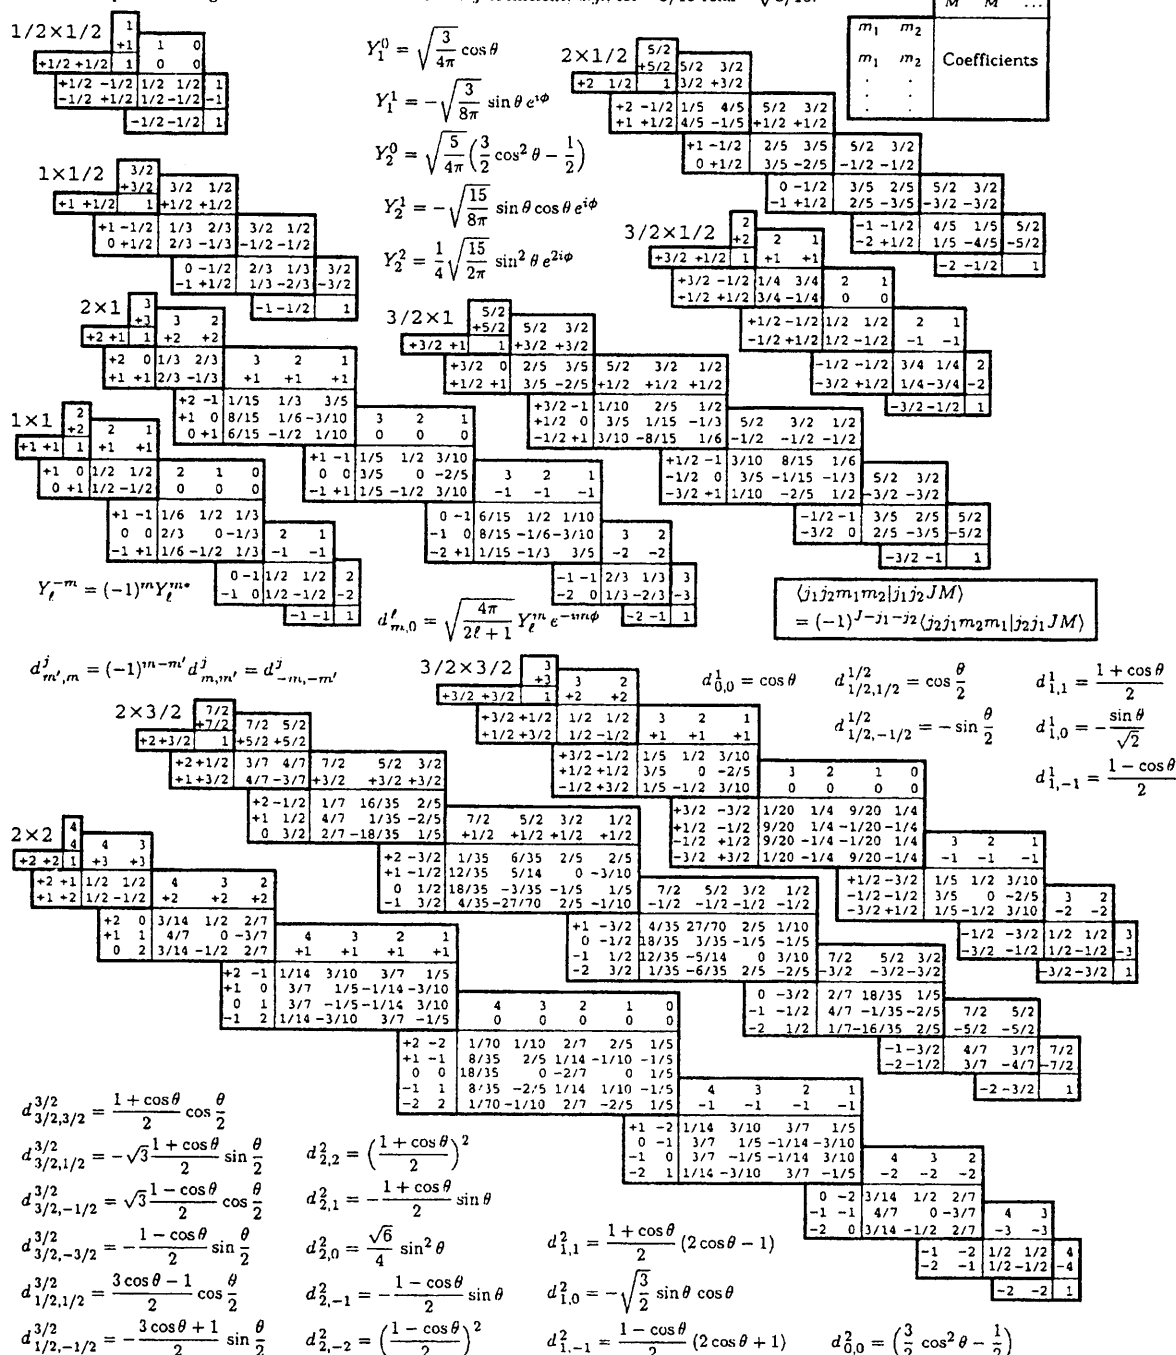 M M ...
m₁ m₂
m₁ m₂ Coefficients
. .
. .
. .
1/2×1/2
1
+1 1 0
+1/2 +1/2 1 0 0
+1/2 −1/2 1/2 1/2 1
−1/2 +1/2 1/2 −1/2 −1
−1/2 −1/2 1
Y_1^0 = √(3/4π) cos θ
Y_1^1 = −√(3/8π) sin θ e^{iφ}
Y_2^0 = √(5/4π) (3/2 cos² θ − 1/2)
Y_2^1 = −√(15/8π) sin θ cos θ e^{iφ}
Y_2^2 = 1/4 √(15/2π) sin² θ e^{2iφ}
2×1/2
5/2
+5/2 5/2 3/2
+2 1/2 1 3/2 +3/2
+2 −1/2 1/5 4/5 5/2 3/2
+1 +1/2 4/5 −1/5 +1/2 +1/2
+1 −1/2 2/5 3/5 5/2 3/2
0 +1/2 3/5 −2/5 −1/2 −1/2
0 −1/2 3/5 2/5 5/2 3/2
−1 +1/2 2/5 −3/5 −3/2 −3/2
−1 −1/2 4/5 1/5 5/2
−2 +1/2 1/5 −4/5 −5/2
−2 −1/2 1
1×1/2
3/2
+3/2 3/2 1/2
+1 +1/2 1 +1/2 +1/2
+1 −1/2 1/3 2/3 3/2 1/2
0 +1/2 2/3 −1/3 −1/2 −1/2
0 −1/2 2/3 1/3 3/2
−1 +1/2 1/3 −2/3 −3/2
−1 −1/2 1
3/2×1/2
2
+2 2 1
+3/2 +1/2 1 +1 +1
+3/2 −1/2 1/4 3/4 2 1
+1/2 +1/2 3/4 −1/4 0 0
+1/2 −1/2 1/2 1/2 2 1
−1/2 +1/2 1/2 −1/2 −1 −1
−1/2 −1/2 3/4 1/4 2
−3/2 +1/2 1/4 −3/4 −2
−3/2 −1/2 1
2×1
3
+3 3 2
+2 +1 1 +2 +2
+2 0 1/3 2/3 3 2 1
+1 +1 2/3 −1/3 +1 +1 +1
+2 −1 1/15 1/3 3/5
+1 0 8/15 1/6 −3/10 3 2 1
0 +1 6/15 −1/2 1/10 0 0 0
+1 −1 1/5 1/2 3/10
0 0 3/5 0 −2/5 3 2 1
−1 +1 1/5 −1/2 3/10 −1 −1 −1
0 −1 6/15 1/2 1/10
−1 0 8/15 −1/6 −3/10 3 2
−2 +1 1/15 −1/3 3/5 −2 −2
−1 −1 2/3 1/3 3
−2 0 1/3 −2/3 −3
−2 −1 1
3/2×1
5/2
+5/2 5/2 3/2
+3/2 +1 1 +3/2 +3/2
+3/2 0 2/5 3/5 5/2 3/2 1/2
+1/2 +1 3/5 −2/5 +1/2 +1/2 +1/2
+3/2 −1 1/10 2/5 1/2
+1/2 0 3/5 1/15 −1/3 5/2 3/2 1/2
−1/2 +1 3/10 −8/15 1/6 −1/2 −1/2 −1/2
+1/2 −1 3/10 8/15 1/6
−1/2 0 3/5 −1/15 −1/3 5/2 3/2
−3/2 +1 1/10 −2/5 1/2 −3/2 −3/2
−1/2 −1 3/5 2/5 5/2
−3/2 0 2/5 −3/5 −5/2
−3/2 −1 1
1×1
2
+2 2 1
+1 +1 1 +1 +1
+1 0 1/2 1/2 2 1 0
0 +1 1/2 −1/2 0 0 0
+1 −1 1/6 1/2 1/3
0 0 2/3 0 −1/3 2 1
−1 +1 1/6 −1/2 1/3 −1 −1
0 −1 1/2 1/2 2
−1 0 1/2 −1/2 −2
−1 −1 1
Y_ℓ^{−m} = (−1)^m Y_ℓ^{m*}
d^ℓ_{m,0} = √(4π/(2ℓ+1)) Y_ℓ^m e^{−imφ}
⟨j₁j₂m₁m₂|j₁j₂JM⟩
= (−1)^{J−j₁−j₂}⟨j₂j₁m₂m₁|j₂j₁JM⟩
d^j_{m′,m} = (−1)^{m−m′} d^j_{m,m′} = d^j_{−m,−m′}
3/2×3/2
3
+3 3 2
+3/2 +3/2 1 +2 +2
+3/2 +1/2 1/2 1/2 3 2 1
+1/2 +3/2 1/2 −1/2 +1 +1 +1
+3/2 −1/2 1/5 1/2 3/10
+1/2 +1/2 3/5 0 −2/5 3 2 1 0
−1/2 +3/2 1/5 −1/2 3/10 0 0 0 0
+3/2 −3/2 1/20 1/4 9/20 1/4
+1/2 −1/2 9/20 1/4 −1/20 −1/4
−1/2 +1/2 9/20 −1/4 −1/20 1/4 3 2 1
−3/2 +3/2 1/20 −1/4 9/20 −1/4 −1 −1 −1
+1/2 −3/2 1/5 1/2 3/10
−1/2 −1/2 3/5 0 −2/5 3 2
−3/2 +1/2 1/5 −1/2 3/10 −2 −2
−1/2 −3/2 1/2 1/2 3
−3/2 −1/2 1/2 −1/2 −3
−3/2 −3/2 1
d^1_{0,0} = cos θ d^{1/2}_{1/2,1/2} = cos θ/2 d^1_{1,1} = (1 + cos θ)/2
d^{1/2}_{1/2,−1/2} = − sin θ/2 d^1_{1,0} = −sin θ/√2
d^1_{1,−1} = (1 − cos θ)/2
2×3/2
7/2
+7/2 7/2 5/2
+2 +3/2 1 +5/2 +5/2
+2 +1/2 3/7 4/7 7/2 5/2 3/2
+1 +3/2 4/7 −3/7 +3/2 +3/2 +3/2
+2 −1/2 1/7 16/35 2/5
+1 1/2 4/7 1/35 −2/5 7/2 5/2 3/2 1/2
0 3/2 2/7 −18/35 1/5 +1/2 +1/2 +1/2 +1/2
+2 −3/2 1/35 6/35 2/5 2/5
+1 −1/2 12/35 5/14 0 −3/10
0 1/2 18/35 −3/35 −1/5 1/5 7/2 5/2 3/2 1/2
−1 3/2 4/35 −27/70 2/5 −1/10 −1/2 −1/2 −1/2 −1/2
+1 −3/2 4/35 27/70 2/5 1/10
0 −1/2 18/35 3/35 −1/5 −1/5
−1 1/2 12/35 −5/14 0 3/10 7/2 5/2 3/2
−2 3/2 1/35 −6/35 2/5 −2/5 −3/2 −3/2 −3/2
0 −3/2 2/7 18/35 1/5
−1 −1/2 4/7 −1/35 −2/5 7/2 5/2
−2 1/2 1/7 −16/35 2/5 −5/2 −5/2
−1 −3/2 4/7 3/7 7/2
−2 −1/2 3/7 −4/7 −7/2
−2 −3/2 1
2×2
4
4 4 3
+2 +2 1 +3 +3
+2 +1 1/2 1/2 4 3 2
+1 +2 1/2 −1/2 +2 +2 +2
+2 0 3/14 1/2 2/7
+1 1 4/7 0 −3/7 4 3 2 1
0 2 3/14 −1/2 2/7 +1 +1 +1 +1
+2 −1 1/14 3/10 3/7 1/5
+1 0 3/7 1/5 −1/14 −3/10
0 1 3/7 −1/5 −1/14 3/10 4 3 2 1 0
−1 2 1/14 −3/10 3/7 −1/5 0 0 0 0 0
+2 −2 1/70 1/10 2/7 2/5 1/5
+1 −1 8/35 2/5 1/14 −1/10 −1/5
0 0 18/35 0 −2/7 0 1/5
−1 1 8/35 −2/5 1/14 1/10 −1/5 4 3 2 1
−2 2 1/70 −1/10 2/7 −2/5 1/5 −1 −1 −1 −1
+1 −2 1/14 3/10 3/7 1/5
0 −1 3/7 1/5 −1/14 −3/10
−1 0 3/7 −1/5 −1/14 3/10 4 3 2
−2 1 1/14 −3/10 3/7 −1/5 −2 −2 −2
0 −2 3/14 1/2 2/7
−1 −1 4/7 0 −3/7 4 3
−2 0 3/14 −1/2 2/7 −3 −3
−1 −2 1/2 1/2 4
−2 −1 1/2 −1/2 −4
−2 −2 1
d^{3/2}_{3/2,3/2} = (1 + cos θ)/2 cos θ/2
d^{3/2}_{3/2,1/2} = −√3 (1 + cos θ)/2 sin θ/2 d^2_{2,2} = ((1 + cos θ)/2)²
d^{3/2}_{3/2,−1/2} = √3 (1 − cos θ)/2 cos θ/2 d^2_{2,1} = −(1 + cos θ)/2 sin θ
d^{3/2}_{3/2,−3/2} = −(1 − cos θ)/2 sin θ/2 d^2_{2,0} = √6/4 sin² θ d^2_{1,1} = (1 + cos θ)/2 (2 cos θ − 1)
d^{3/2}_{1/2,1/2} = (3 cos θ − 1)/2 cos θ/2 d^2_{2,−1} = −(1 − cos θ)/2 sin θ d^2_{1,0} = −√(3/2) sin θ cos θ
d^{3/2}_{1/2,−1/2} = −(3 cos θ + 1)/2 sin θ/2 d^2_{2,−2} = ((1 − cos θ)/2)² d^2_{1,−1} = (1 − cos θ)/2 (2 cos θ + 1) d^2_{0,0} = (3/2 cos² θ − 1/2)